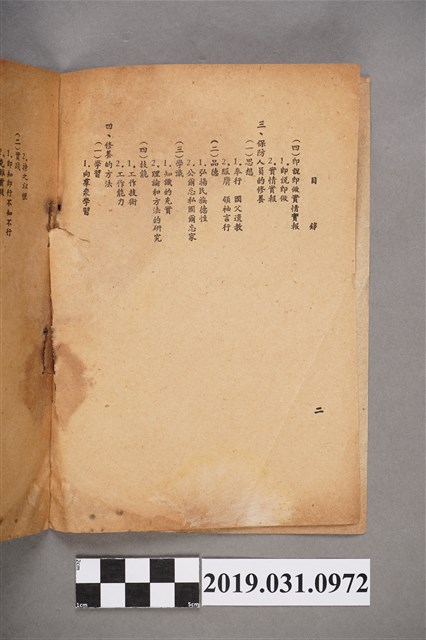 目錄
(四)即說即做實情實報
1.即說即做
2.實情實報
三、保防人員的修養
(一)思想
1.奉行 國父遺教
2.服膺 領袖言行
(二)品德
1.弘揚民族德性
2.公爾忘私國爾忘家
(三)學識
1.知識的充實
2.理論和方法的研究
(四)技能
1.工作技術
2.工作能力
四、修養的方法
(一)學習
1.向羣衆學習
二
2.持之以恆
(二)實踐
1.即知即行不知不行
2019.031.0972
1cm
5cm